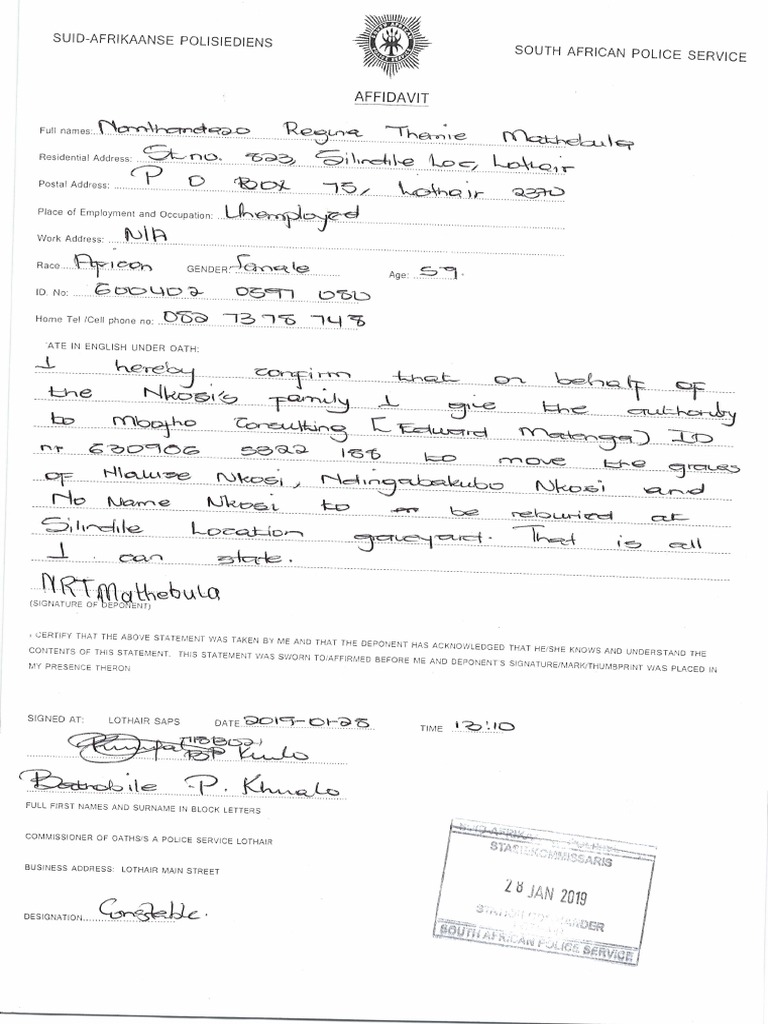 SUID-AFRIKAANSE POLISIEDIENS
SOUTH AFRICAN POLICE SERVICE
AFFIDAVIT
Full names: Nomthandazo Regina Thenie Mathebula
Residential Address: St no. 823, Silindile Loc, Lothair
Postal Address: P O BOX 75, Lothair 2370
Place of Employment and Occupation: Unemployed
Work Address: N/A
Race African GENDER: Female Age: 59.
ID. No: 600402 0597 080
Home Tel /Cell phone no: 082 7378 748
ATE IN ENGLISH UNDER OATH:
I hereby confirm that on behalf of
the Nkosi's family I give the authority
to Mbogho Consulting (Edward Matenga) ID
nr 630906 5822 188 to move the graves
of Hlawise Nkosi, Ndingabakubo Nkosi and
No Name Nkosi to be reburied at
Silindile Location graveyard. That is all
I can state.
NRT Mathebula
(SIGNATURE OF DEPONENT)
I CERTIFY THAT THE ABOVE STATEMENT WAS TAKEN BY ME AND THAT THE DEPONENT HAS ACKNOWLEDGED THAT HE/SHE KNOWS AND UNDERSTAND THE
CONTENTS OF THIS STATEMENT. THIS STATEMENT WAS SWORN TO/AFFIRMED BEFORE ME AND DEPONENT'S SIGNATURE/MARK/THUMBPRINT WAS PLACED IN
MY PRESENCE THERON
SIGNED AT: LOTHAIR SAPS DATE 2019-01-28 TIME 13:10
P. Khmalo
FULL FIRST NAMES AND SURNAME IN BLOCK LETTERS
COMMISSIONER OF OATHS/S A POLICE SERVICE LOTHAIR
BUSINESS ADDRESS: LOTHAIR MAIN STREET
DESIGNATION Constable.
STASIEKOMMISSARIS
28 JAN 2019
SOUTH AFRICAN POLICE SERVICE